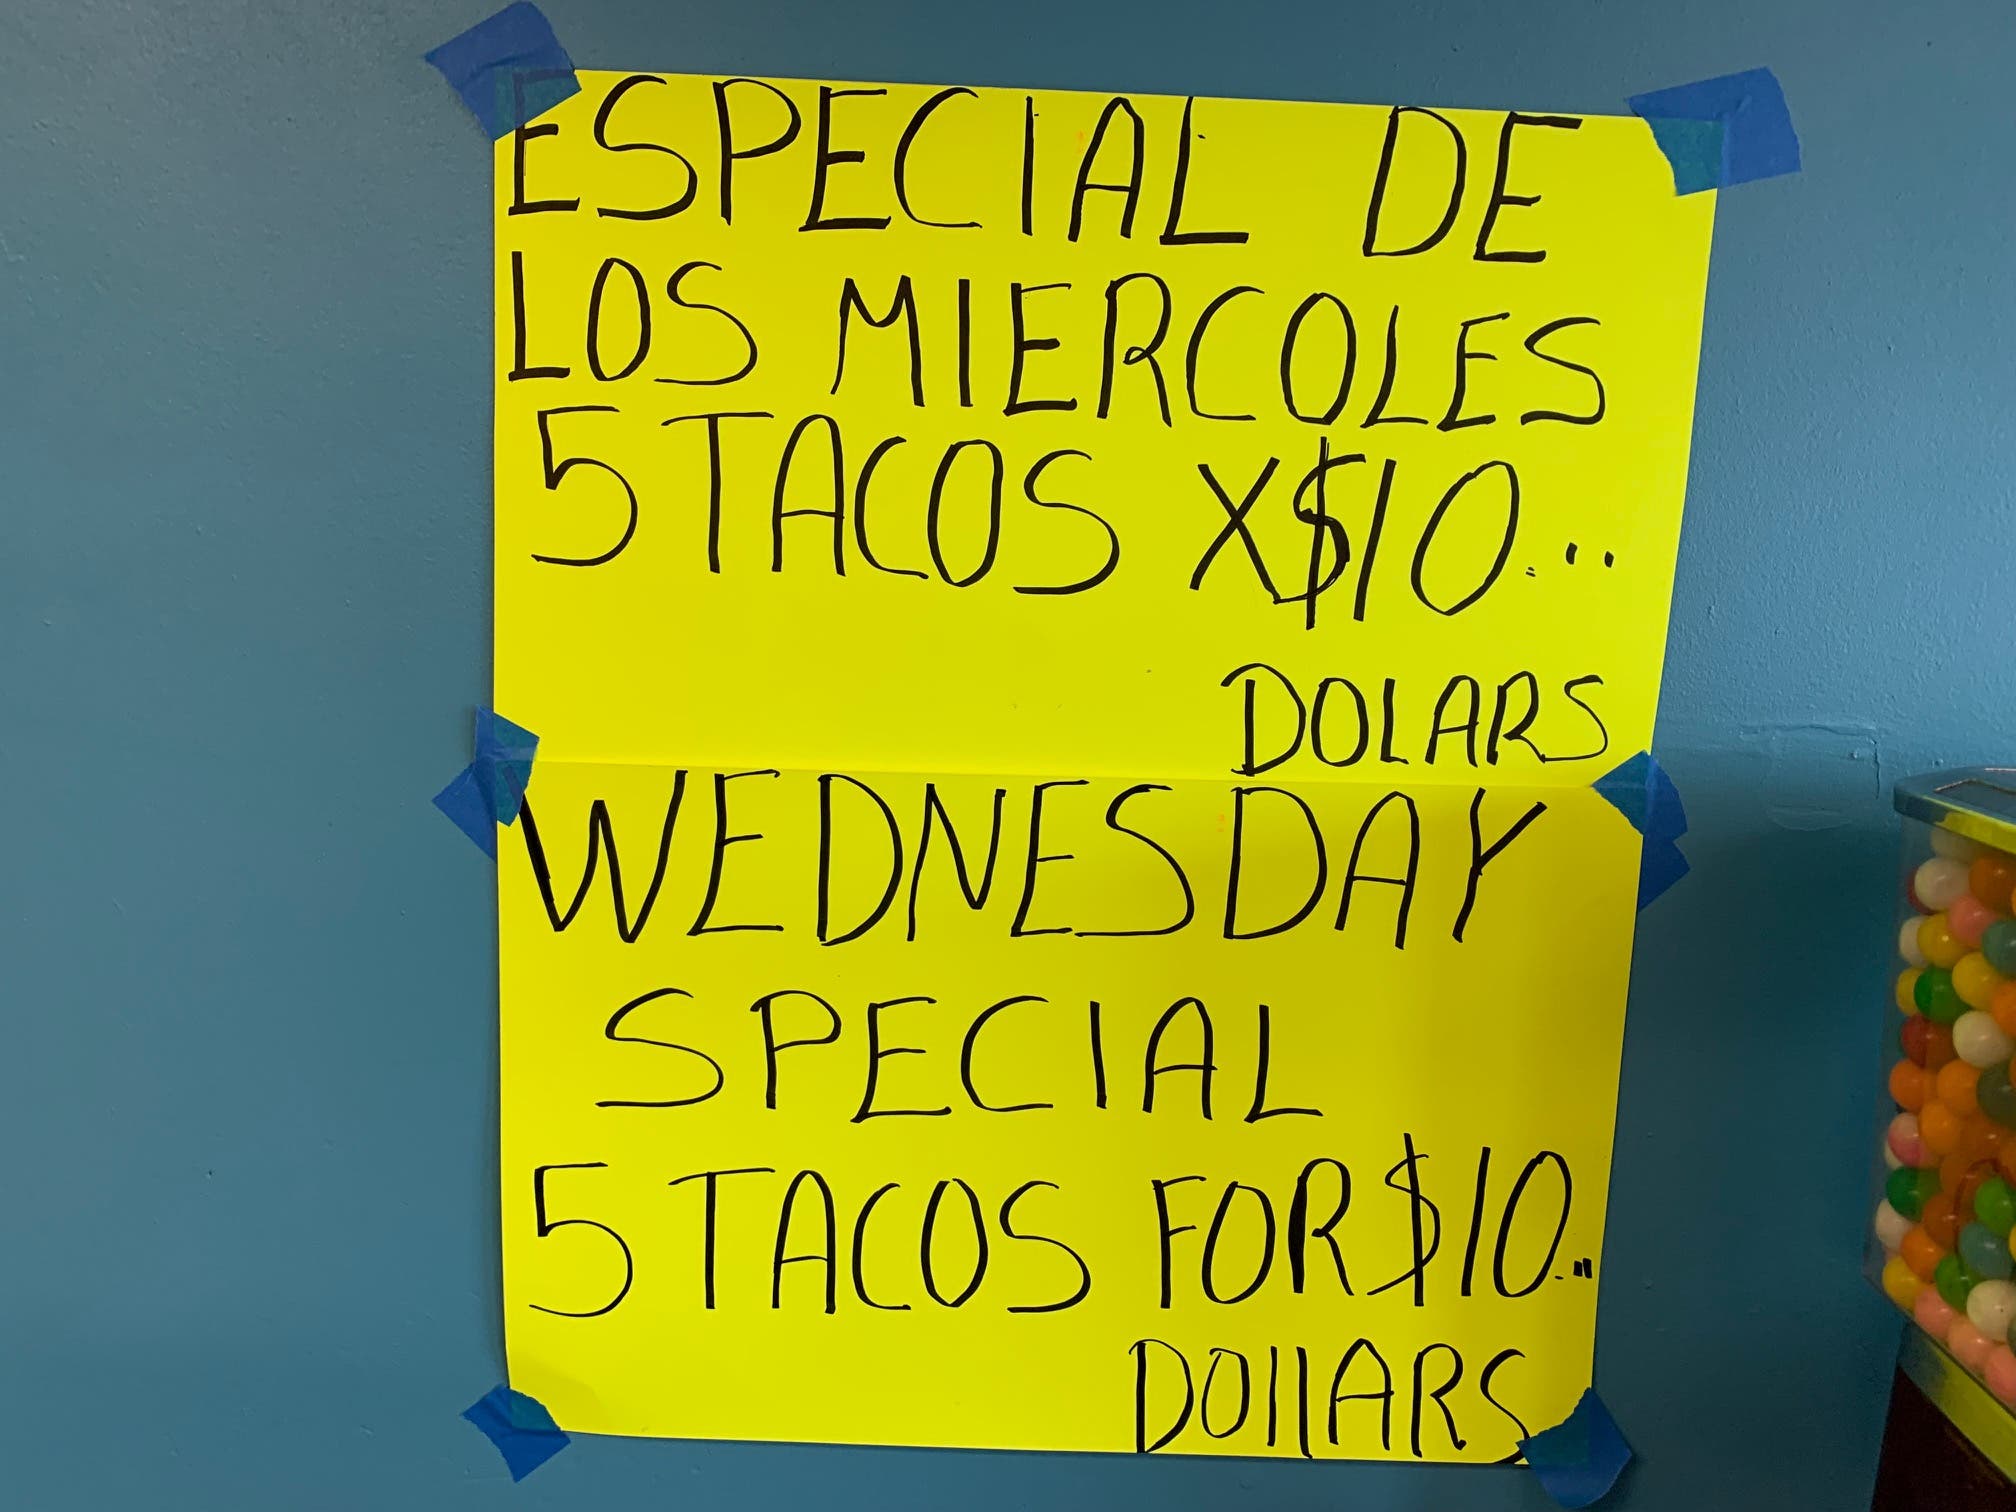 ESPECIAL DE
LOS MIERCOLES
5 TACOS X$10...
DOLARS
WEDNESDAY
SPECIAL
5 TACOS FOR $10...
DOllARS